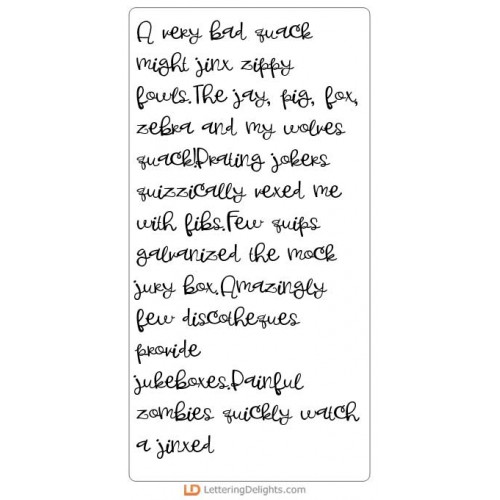 A very bad quack
might jinx zippy
fowls.The jay, pig, fox,
zebra and my wolves
quack!Prating jokers
quizzically vexed me
with fibs.Few quips
galvanized the mock
jury box.Amazingly
few discotheques
provide
jukeboxes.Painful
zombies quickly watch
a jinxed
LD LetteringDelights.com